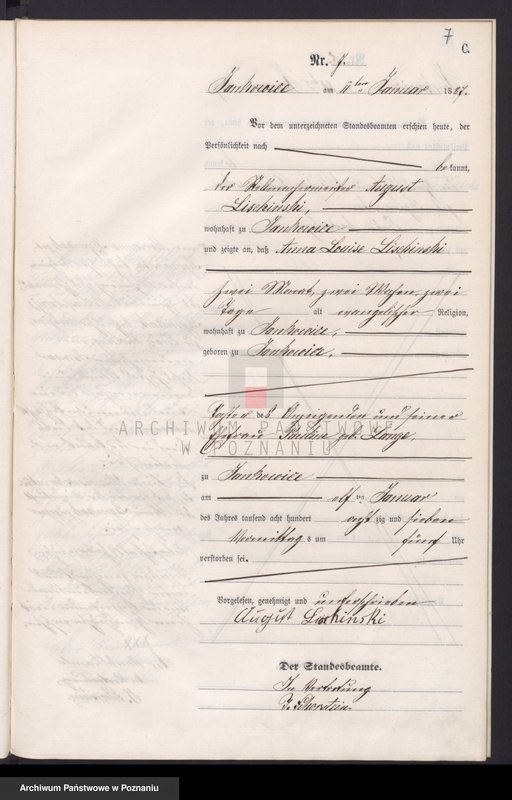 7
C.
Nr. 7.
Jankowice am 11ten Januar 1887.
Vor dem unterzeichneten Standesbeamten erschien heute, der
Persönlichkeit nach
be kannt,
der Stellmachermeister August
Lischinski,
wohnhaft zu Jankowice
und zeigte an, daß Anna Louise Lischinski
zwei Monat, zwei Wochen, zwei
Tage alt evangelischer Religion,
wohnhaft zu Jankowice,
geboren zu Jankowice,
Tochter des Anzeigenden und seiner
Ehefrau Pauline geb. Lange,
zu Jankowice
am elf ten Januar
des Jahres tausend acht hundert acht zig und sieben
Vormittag s um fünf Uhr
verstorben sei.
Vorgelesen, genehmigt und unterschrieben
August Lischinski
Der Standesbeamte.
In Vertretung
ARCHIWUM PAŃSTWOWE
W POZNANIU
Archiwum Państwowe w Poznaniu